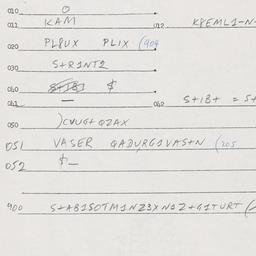 010 O
011 KAM 012 KPEML1-N-
020 PLPUX PLIX (909
030 S+R1NT2
040 $
041 — 042 S+1B+ = S+
050 )CVUG+QZAX
051 VASER QADURG1VAS+N (205
052 $—
900 S+AB1SOTM1NZ3XN1Z+G1TURT (